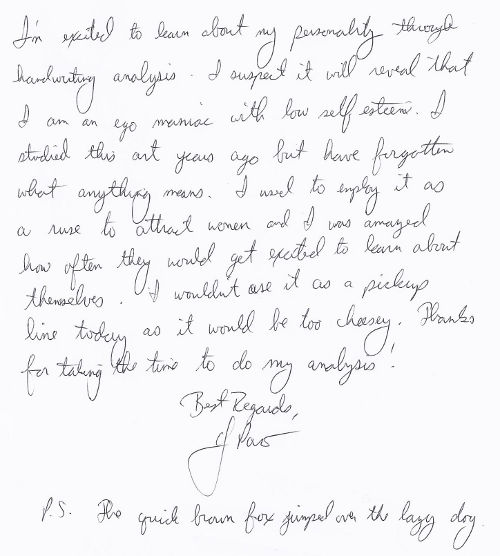 I'm excited to learn about my personality through
handwriting analysis. I suspect it will reveal that
I am an ego maniac with low self esteem. I
studied this art years ago but have forgotten
what anything means. I used to employ it as
a ruse to attract women and I was amazed
how often they would get excited to learn about
themselves. I wouldn't use it as a pickup
line today as it would be too cheesey. Thanks
for taking the time to do my analysis!
Best Regards,
P.S. The quick brown fox jumped over the lazy dog.